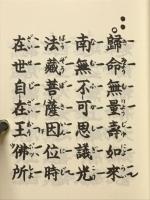 歸命無量壽如來
南無不可思議光
法藏菩薩因位時
在世自在王佛所